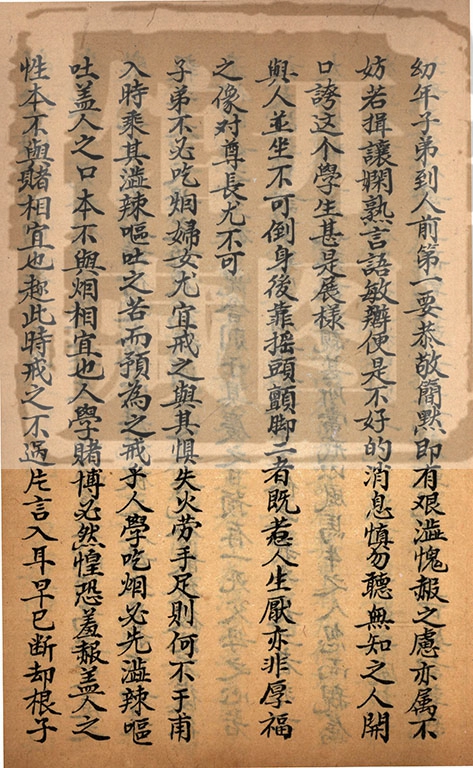 幼年子弟到人前第一要恭敬簡默即有艰澁愧赧之慮亦属不
妨若揖讓嫻熟言語敏辯便是不好的消息慎勿聽無知之人開
口誇这个學生甚是展樣
與人並坐不可倒身後靠摇頭顫脚二者既惹人生厭亦非厚福
之像对尊長尤不可
子弟不必吃烟婦女尤宜戒之與其惧失火劳手足則何不于甫
入時乘其澁辣嘔吐之苦而預為之戒乎人學吃烟必先澁辣嘔
吐盖人之口本不與烟相宜也人學賭博必然惶恐羞赧盖人之
性本不與賭相宜也趁此時戒之不過片言入耳早已断却根子